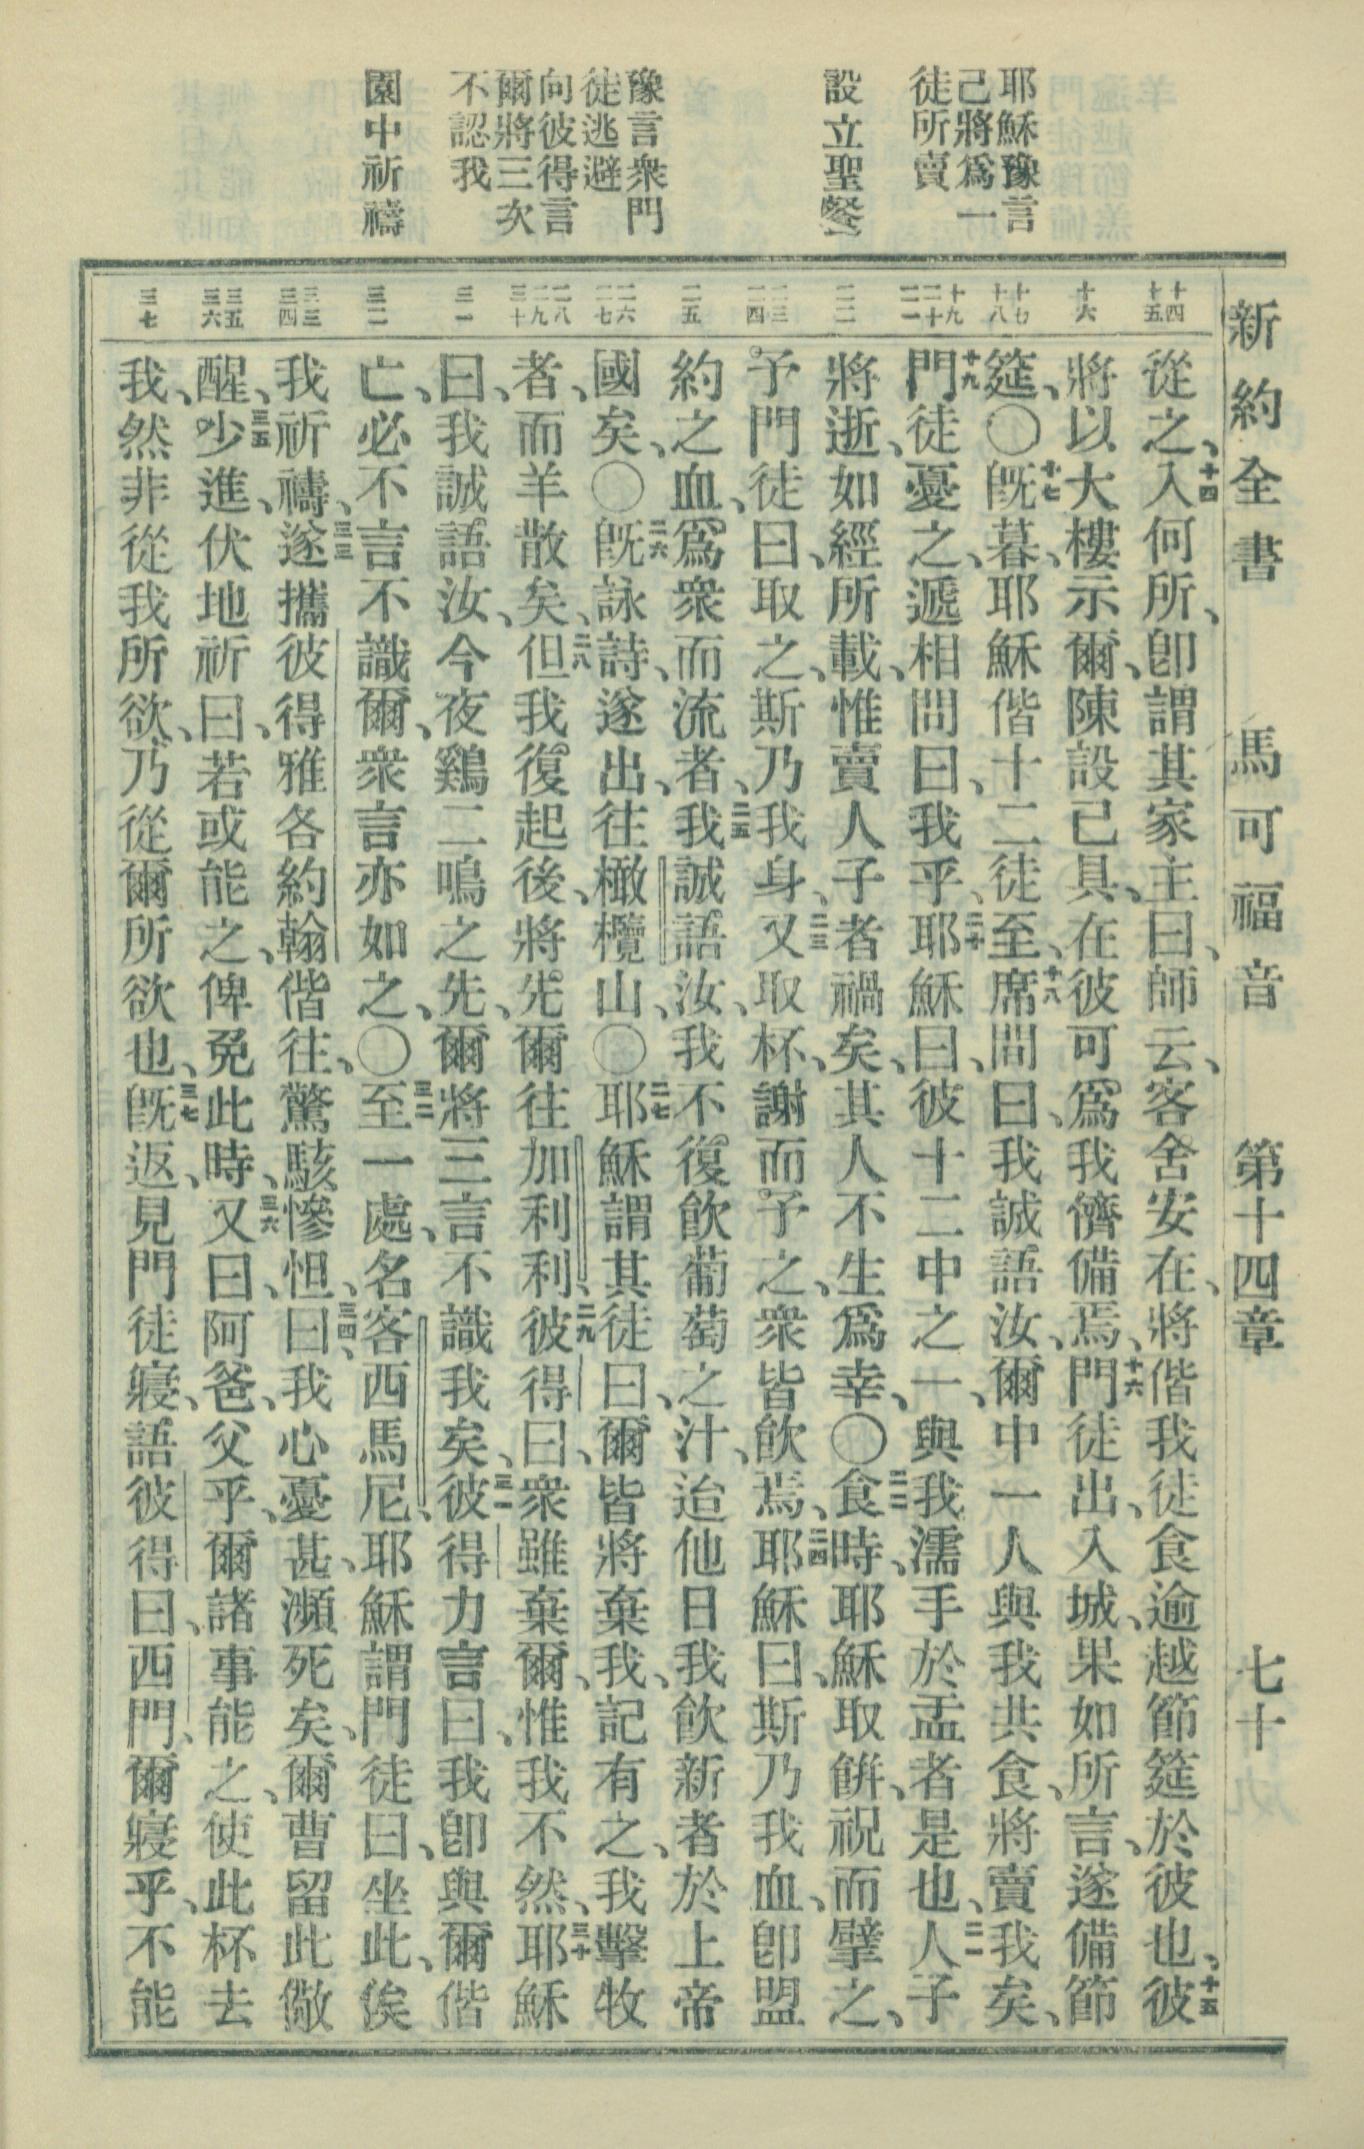 新約全書　馬可福音　第十四章　七十
耶穌豫言
己將爲一
徒所賣
設立聖餐
豫言衆門
徒逃避
向彼得言
爾將三次
不認我
園中祈禱
十四 十五
十六
十七 十八
十九 二十 二一
二二
二三 二四
二五
二六 二七
二八 二九 三十
三一
三二
三三 三四
三五 三六
三七
從之、十四入何所、卽謂其家主曰、師云、客舍安在、將偕我徒食逾越節筵於彼也、十五彼
將以大樓示爾、陳設已具、在彼可爲我儕備焉、十六門徒出、入城、果如所言、遂備節
筵、〇十七旣暮、耶穌偕十二徒至、十八席間曰、我誠語汝、爾中一人與我共食、將賣我矣、
十九門徒憂之、遞相問曰、我乎、二十耶穌曰、彼十二中之一、與我濡手於盂者是也、二一人子
將逝、如經所載、惟賣人子者禍矣、其人不生爲幸、〇二二食時、耶穌取餠、祝而擘之、
予門徒曰、取之、斯乃我身、二三又取杯、謝而予之、衆皆飮焉、二四耶穌曰、斯乃我血、卽盟
約之血、爲衆而流者、二五我誠語汝、我不復飮葡萄之汁、迨他日我飮新者於上帝
國矣、〇二六旣詠詩、遂出、往橄欖山、〇二七耶穌謂其徒曰、爾皆將棄我、記有之、我擊牧
者、而羊散矣、二八但我復起後、將先爾往加利利、二九彼得曰、衆雖棄爾、惟我不然、三十耶穌
曰、我誠語汝、今夜鷄二鳴之先、爾將三言不識我矣、三一彼得力言曰、我卽與爾偕
亡、必不言不識爾、衆言亦如之、〇三二至一處、名客西馬尼、耶穌謂門徒曰、坐此、俟
我祈禱、三三遂攜彼得雅各約翰偕往、驚駭慘怛、三四曰、我心憂甚、瀕死矣、爾曹留此儆
醒、三五少進、伏地祈曰、若或能之、俾免此時、三六又曰、阿爸、父乎、爾諸事能之、使此杯去
我、然非從我所欲、乃從爾所欲也、三七旣返、見門徒寢、語彼得曰、西門、爾寢乎、不能